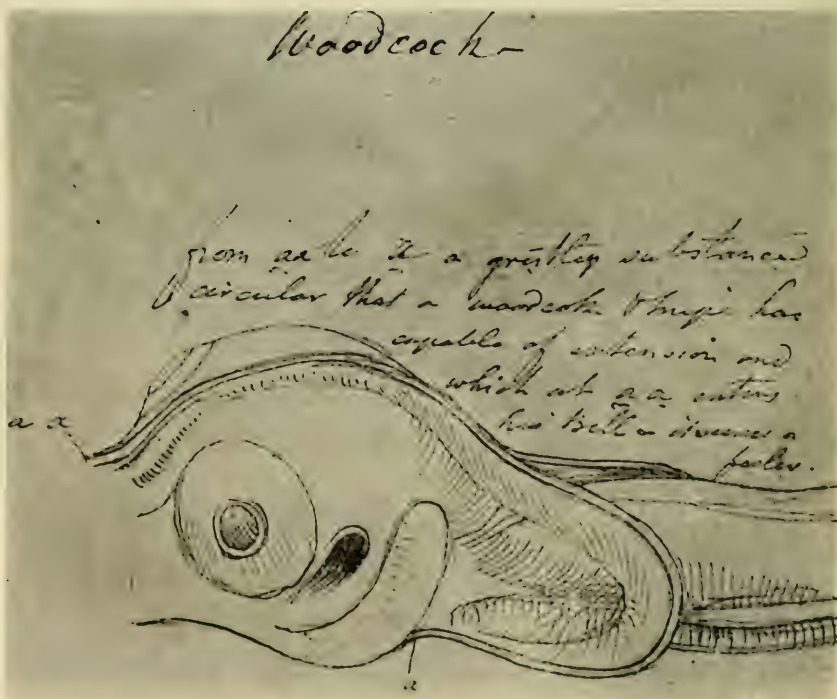 Woodcock -
from aa to a gristly substance
circular that a woodcock & snipe has
capable of extension and
which at aa enters
his Bill &
feeler.
a a
a